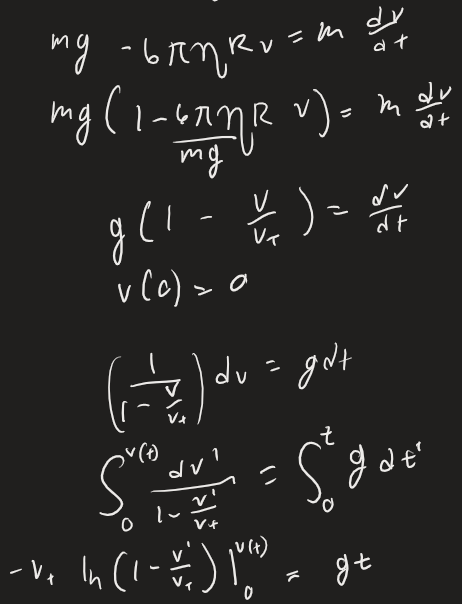 mg - 6πηRv = m dv/dt
mg(1 - 6πηR/mg v) = m dv/dt
g(1 - v/v_T) = dv/dt
v(0) = 0
(1/(1 - v/v_t)) dv = g dt
∫_0^{v(t)} dv'/(1 - v'/v_t) = ∫_0^t g dt'
-v_t ln(1 - v'/v_T)|_0^{v(t)} = gt